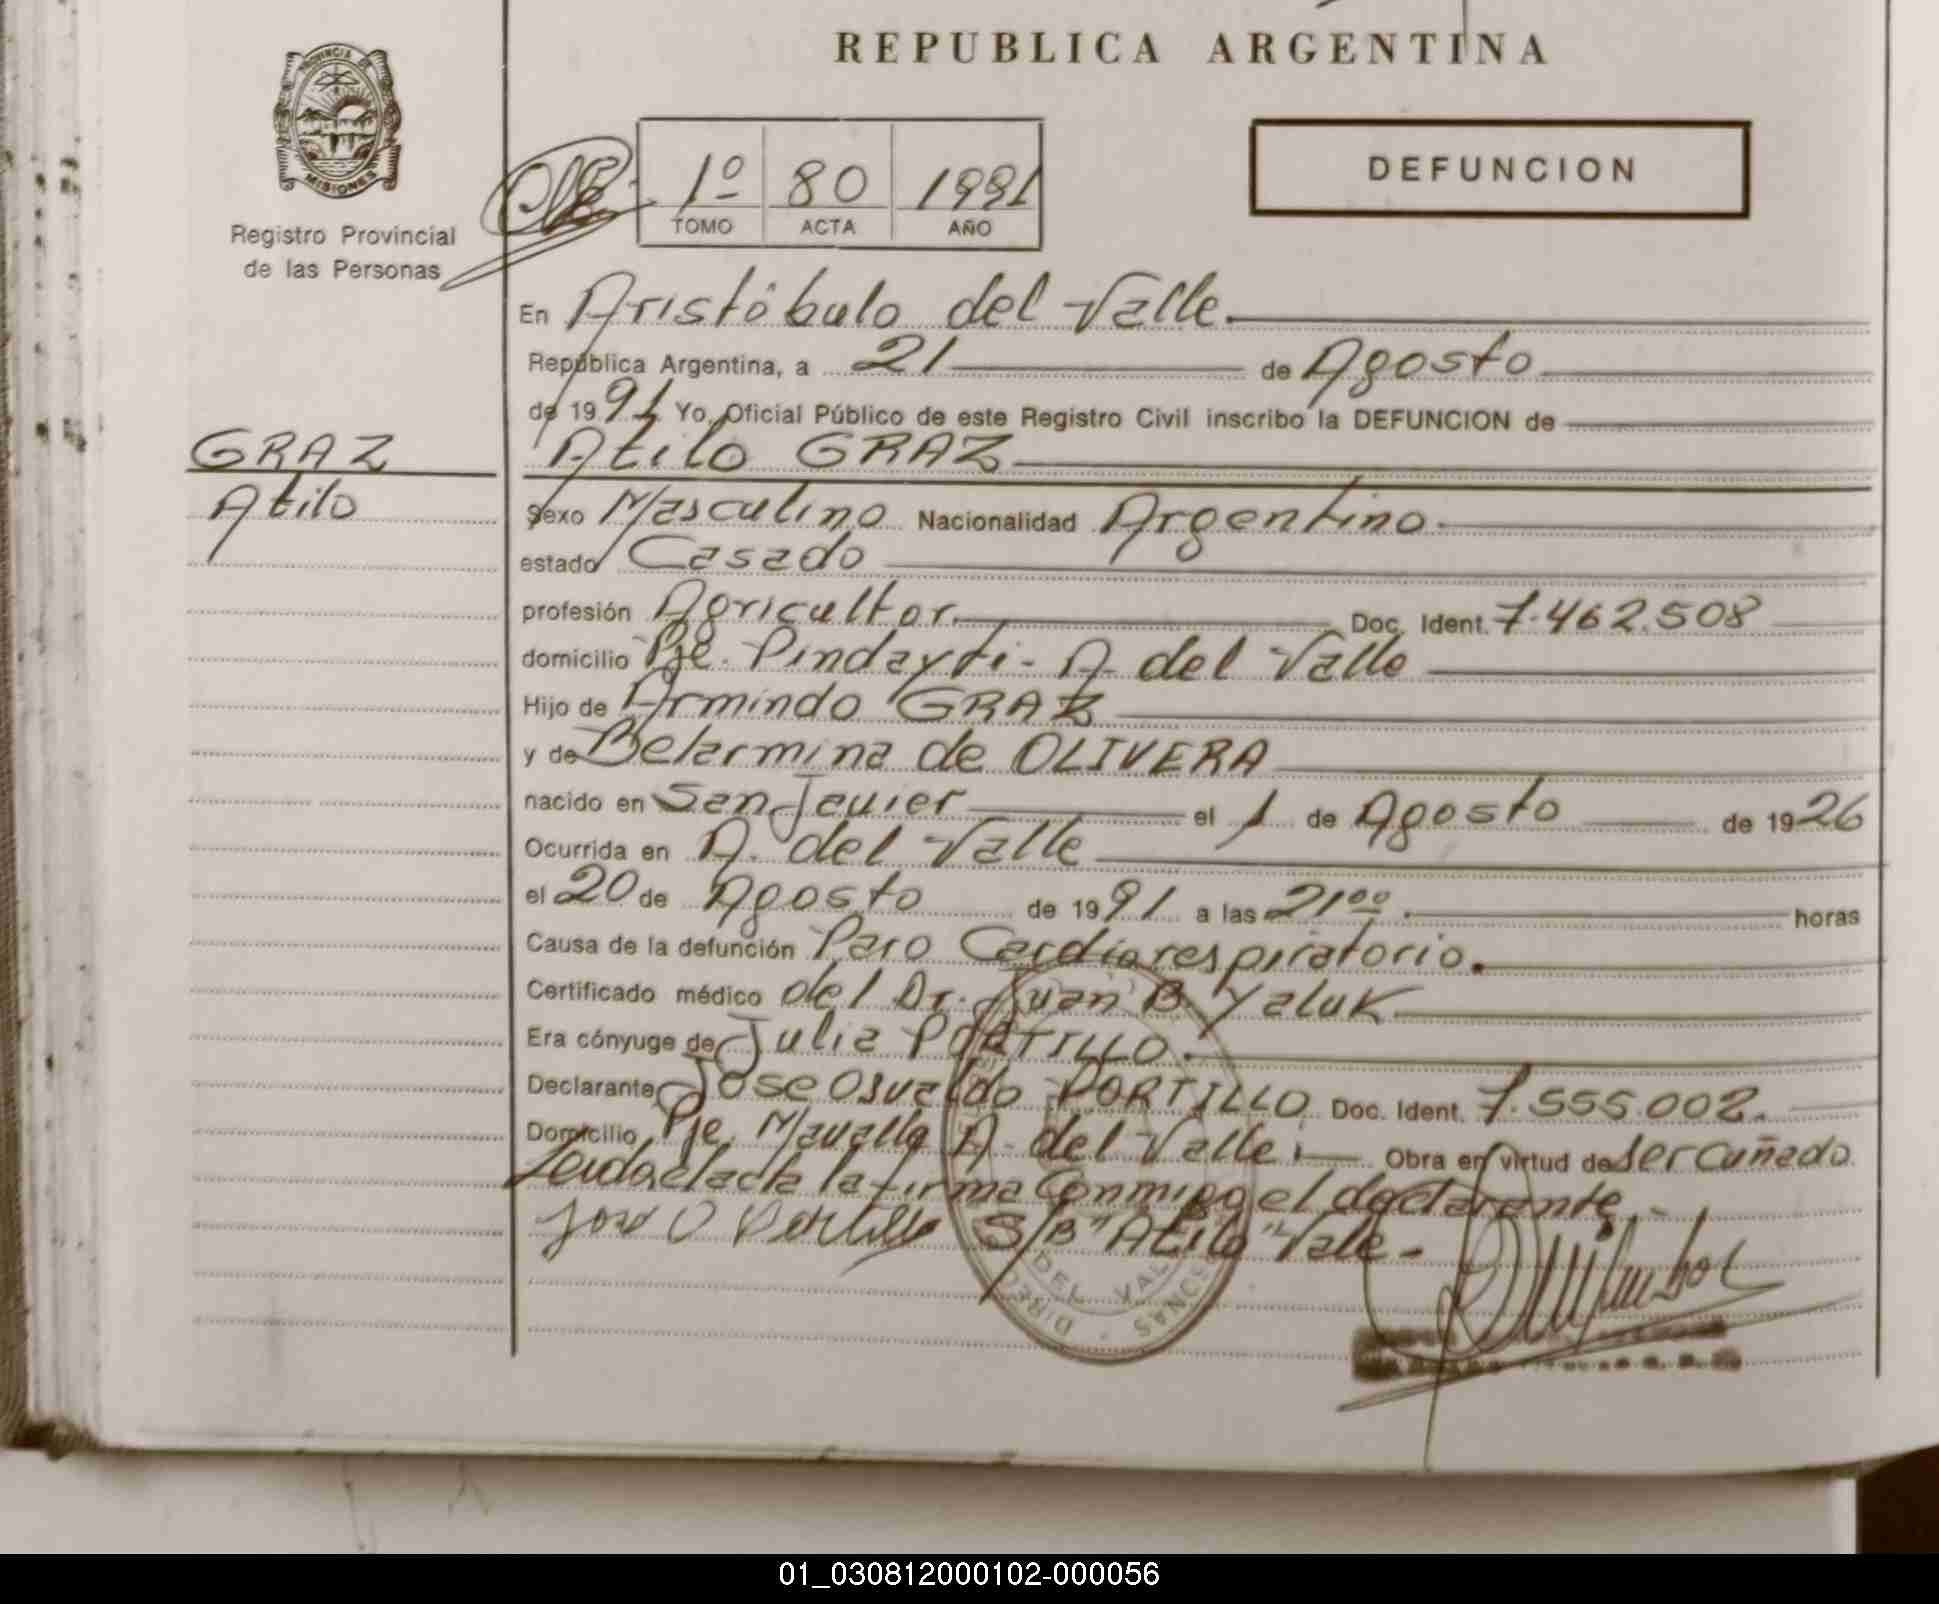 REPUBLICA ARGENTINA
PROVINCIA DE
MISIONES
Registro Provincial
de las Personas
1º 80 1991
TOMO ACTA AÑO
DEFUNCION
En Aristóbulo del Valle.
República Argentina, a 21 de Agosto
de 1991 Yo, Oficial Público de este Registro Civil inscribo la DEFUNCION de
GRAZ
Atilo GRAZ
Atilo
Sexo Masculino Nacionalidad Argentino.
estado Casado
profesión Agricultor. Doc. Ident. 7.462.508
domicilio Pje. Pindayti - A. del Valle
Hijo de Armindo GRAZ
y de Belarmina de OLIVERA
nacido en San Javier el 1 de Agosto de 1926
Ocurrida en A. del Valle
el 20 de Agosto de 1991 a las 21ºº. horas
Causa de la defunción Paro Cardiorespiratorio.
Certificado médico del Dr. Juan B. Yaluk
Era cónyuge de Julia PORTILLO.
Declarante Jose Osvaldo PORTILLO Doc. Ident. 7.555.002.
Domicilio Pje. A. del Valle. Obra en virtud de ser cuñado
Leida el acta la firma Conmigo el declarante.-
Jose O Portillo S/B "Atilo" Vale-
DEL VAL
01_030812000102-000056